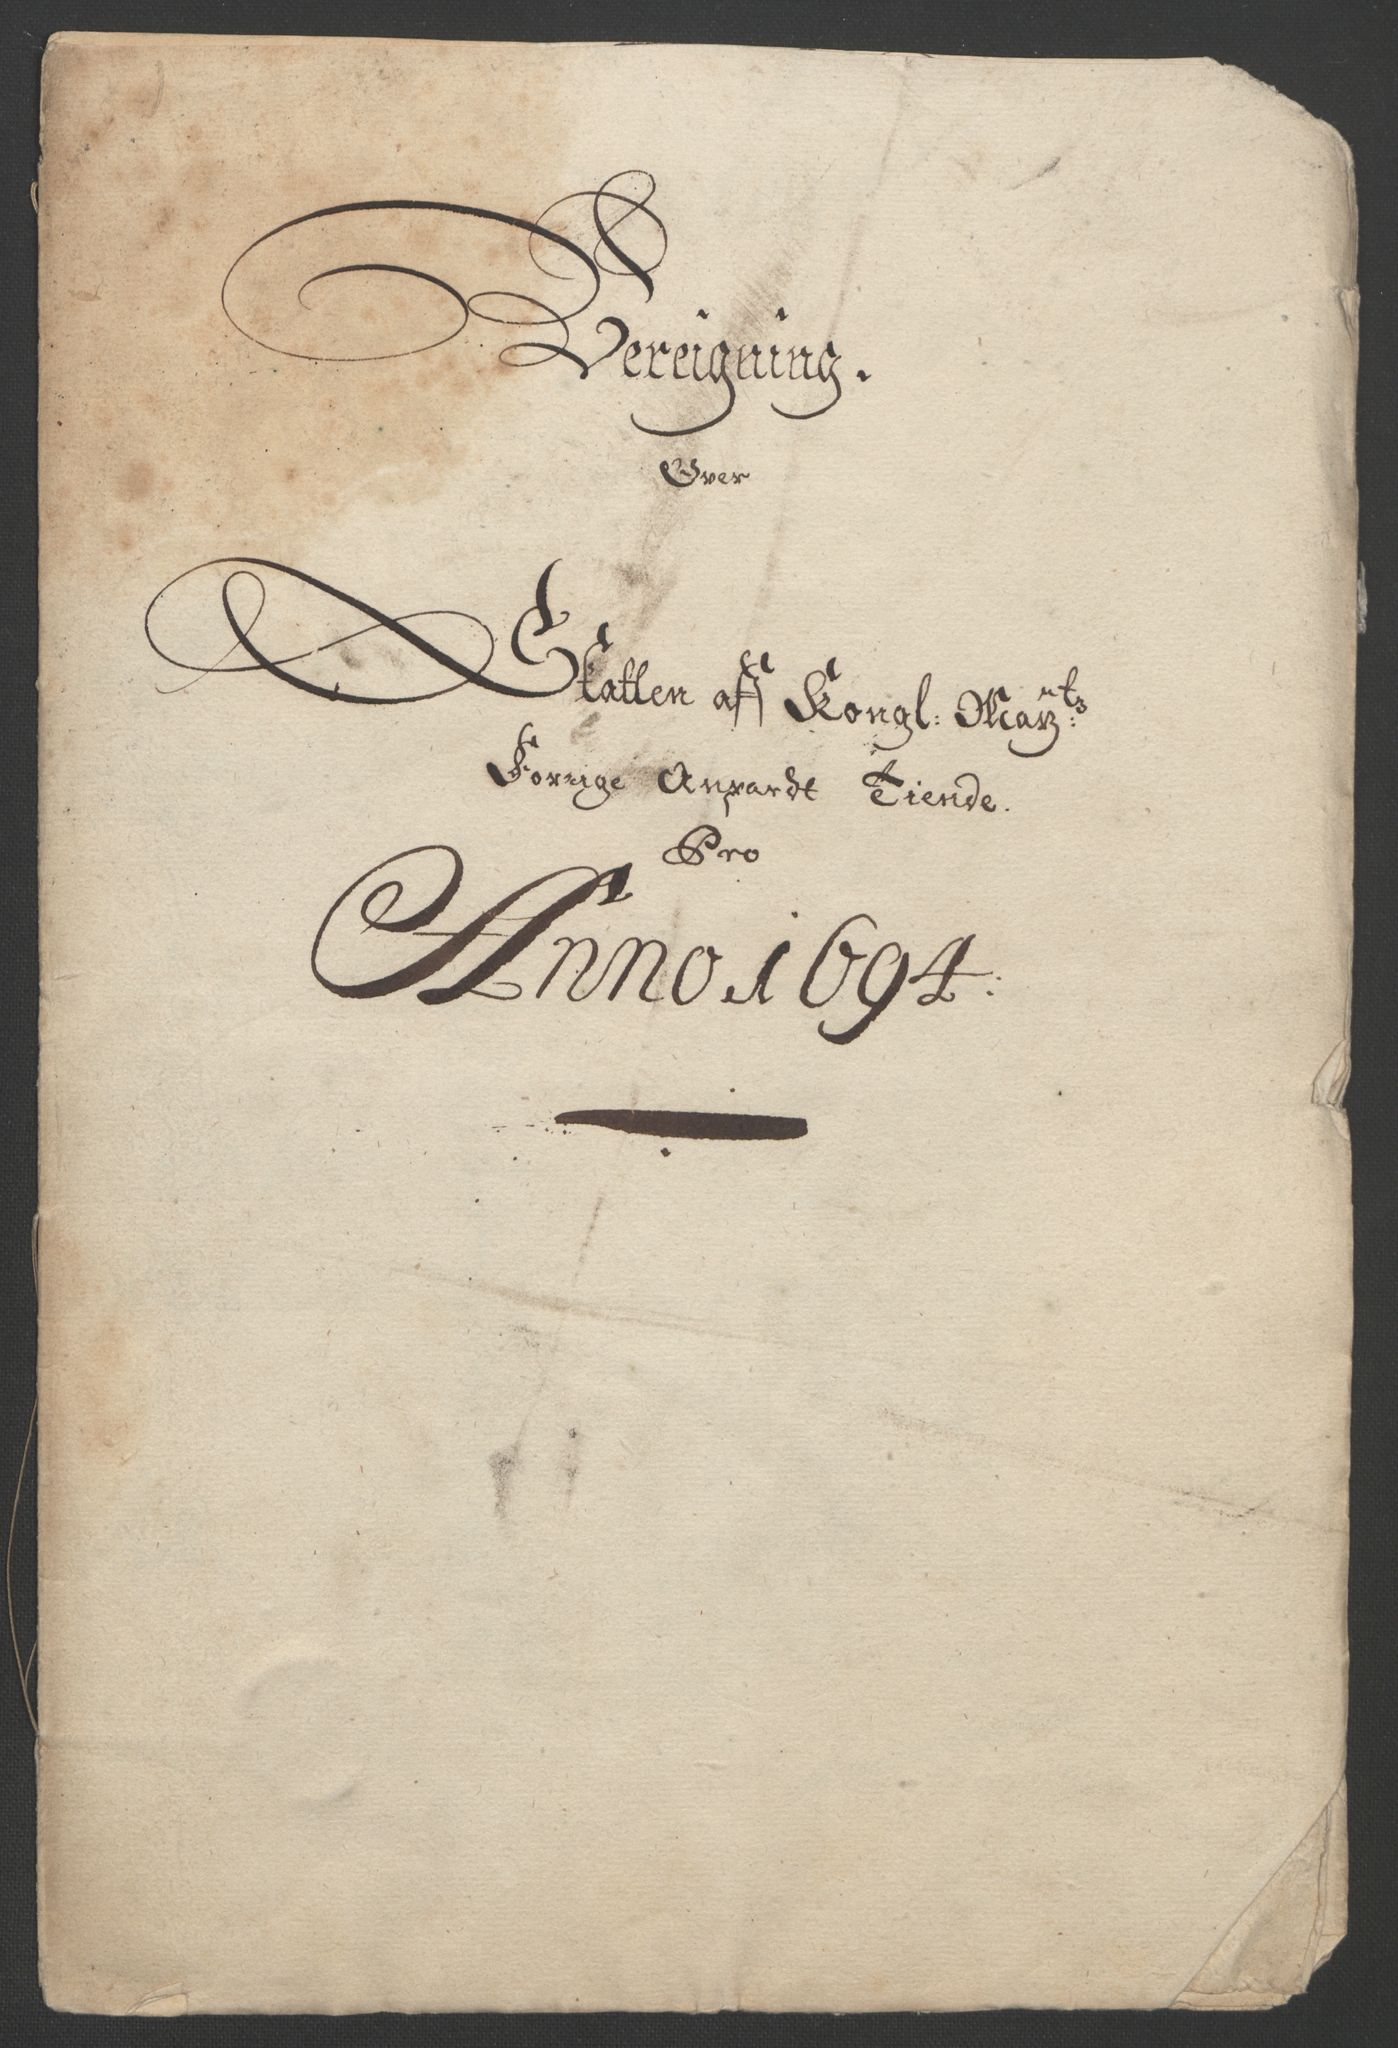 Bereigning.
Over
Skatten aff Kongl: Mayz: ntz
Forrige Anpardt Tiende.
Pro
Anno 1694: